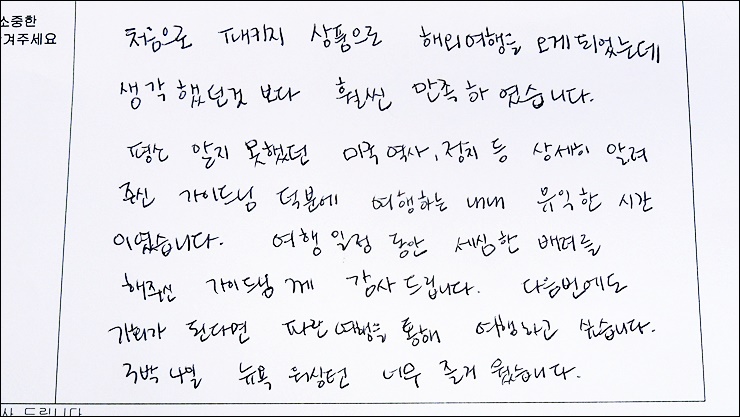 소중한
겨주세요
처음으로 패키지 상품으로 해외여행을 오게되었는데
생각했던것 보다 훨씬 만족하였습니다.
평소 알지 못했던 미국역사, 정치 등 상세히 알려
주신 가이드님 덕분에 여행하는 내내 유익한 시간
이였습니다. 여행일정 동안 세심한 배려를
해주신 가이드님께 감사드립니다. 다음번에도
기회가 된다면 파란여행을 통해 여행하고 싶습니다.
7박 9일 뉴욕 워싱턴 너무 즐거웠습니다.
사 드립니다